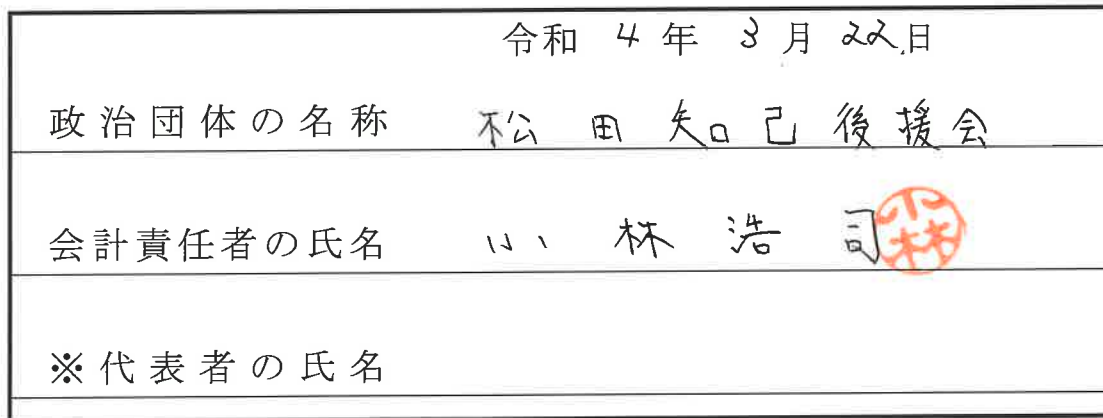 令和 4 年 3 月 22日
政治団体の名称 松田知己後援会
会計責任者の氏名 小林浩司 小林
※代表者の氏名